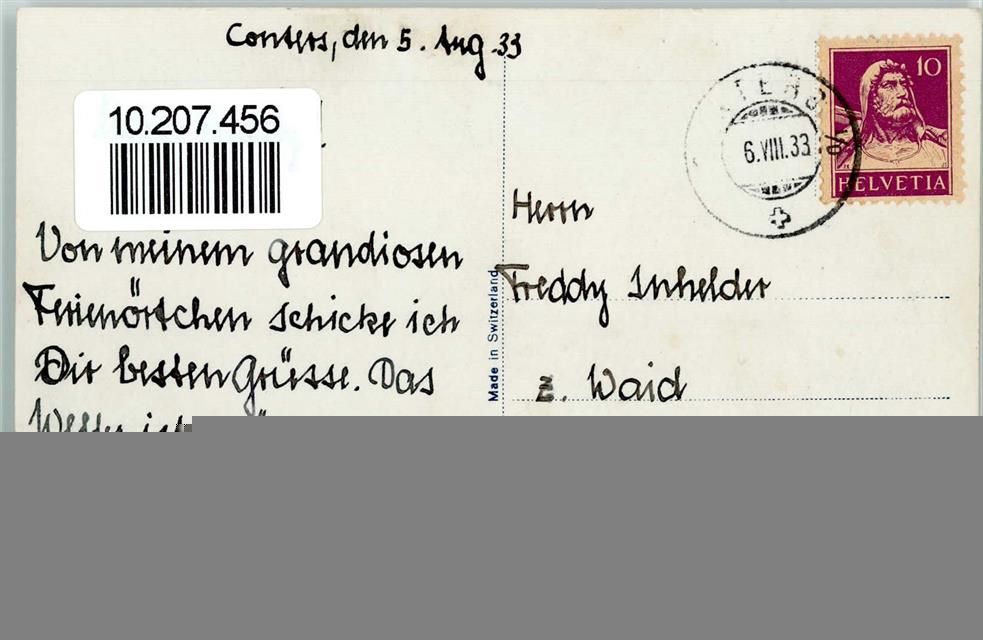 Conters, den 5. Aug. 33
10.207.456
Von meinem grandiosen
Ferienörtchen schicke ich
Dir besten Grüsse. Das
Wetter ist
Made in Switzerland
6.VIII.33
10
HELVETIA
Herrn
Freddy Inhelder
z. Waid